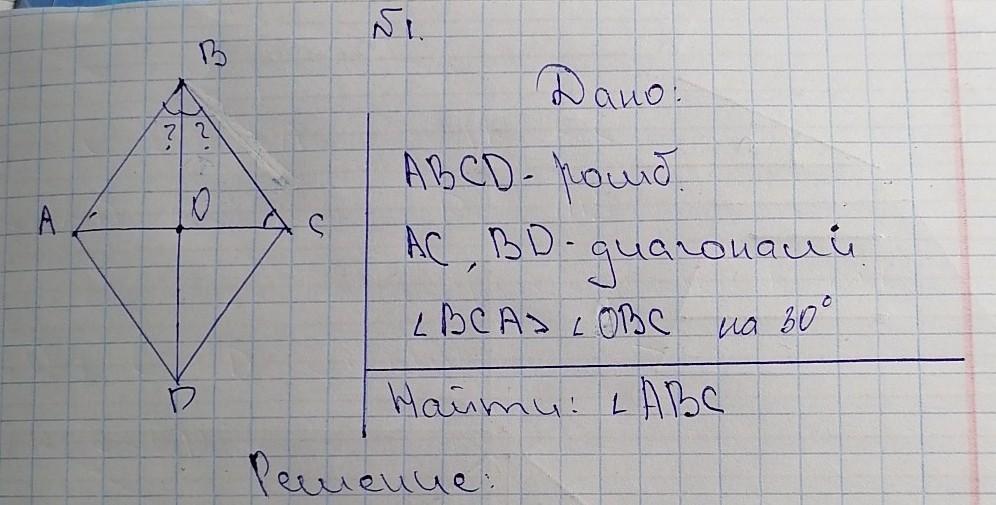 №1.
B
Дано:
? ?
ABCD - ромб.
A O C
AC, BD - диагонали
∠BCA > ∠OBC на 30°
D
Найти: ∠ABC
Решение: